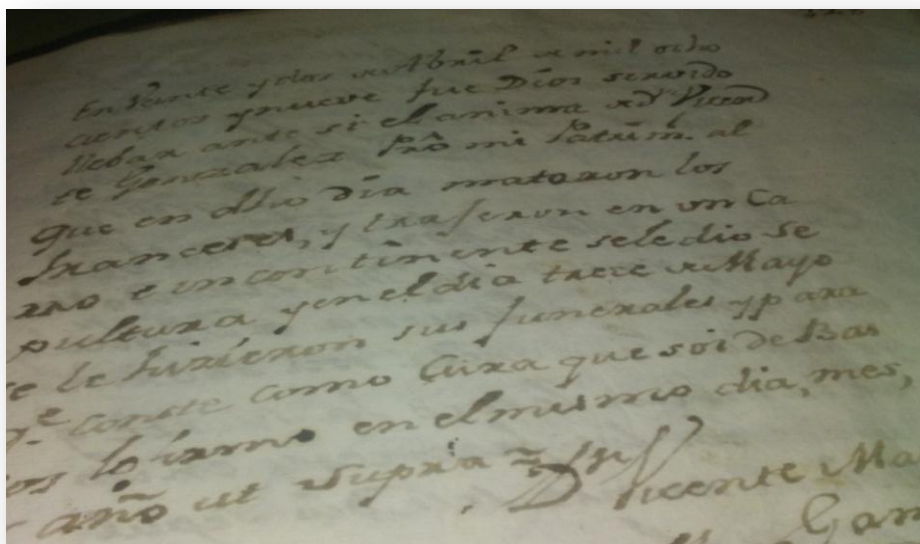 En Veinte y dos de Abril de mil ocho
cientos y nueve fue Dios servido
llebar ante si el anima de Dn Vicen
te Gonzalez Pro mi Patrim. al
que en dho dia mataron los
franceses, y trajeron en un Ca
rro e incontinente se le dio se
pultura y en el dia trece de Mayo
se le hizieron sus funerales y para
qe conste como Cura que soi de Bas
tos lo firmo en el mismo dia, mes,
y año ut supra
Dn Vicente Ma